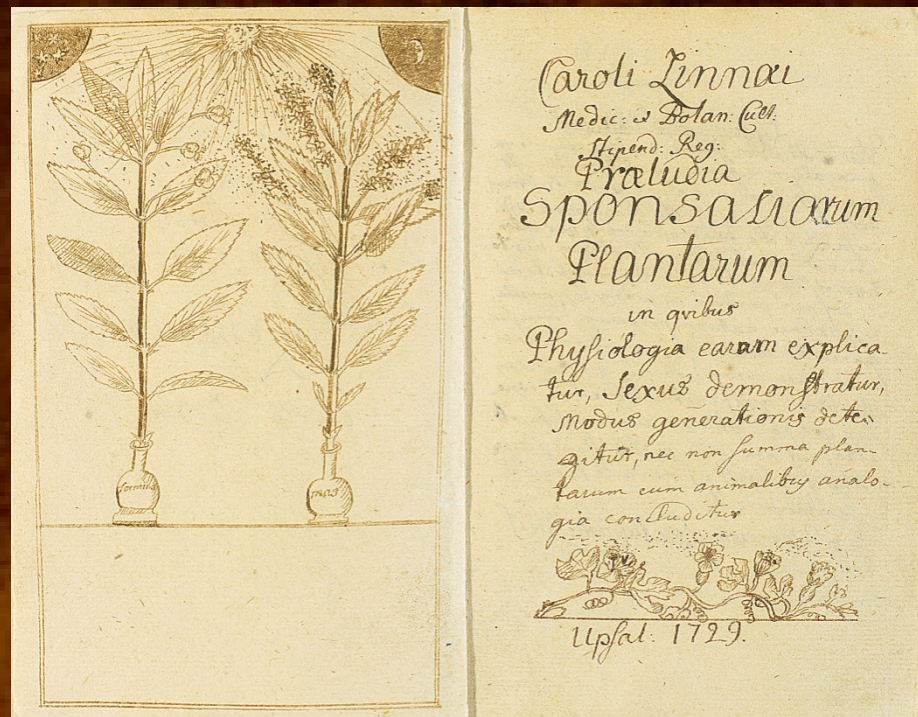 femina
mas
Caroli Linnæi
Medic: & Botan: Cult.
Stipend: Reg:
Præludia
Sponsaliarum
Plantarum
in qvibus
Physiologia earum explica-
tur, Sexus demonstratur,
Modus generationis dete-
gitur, nec non summa plan-
tarum cum animalibus analo-
gia concluditur
Upsal: 1729.